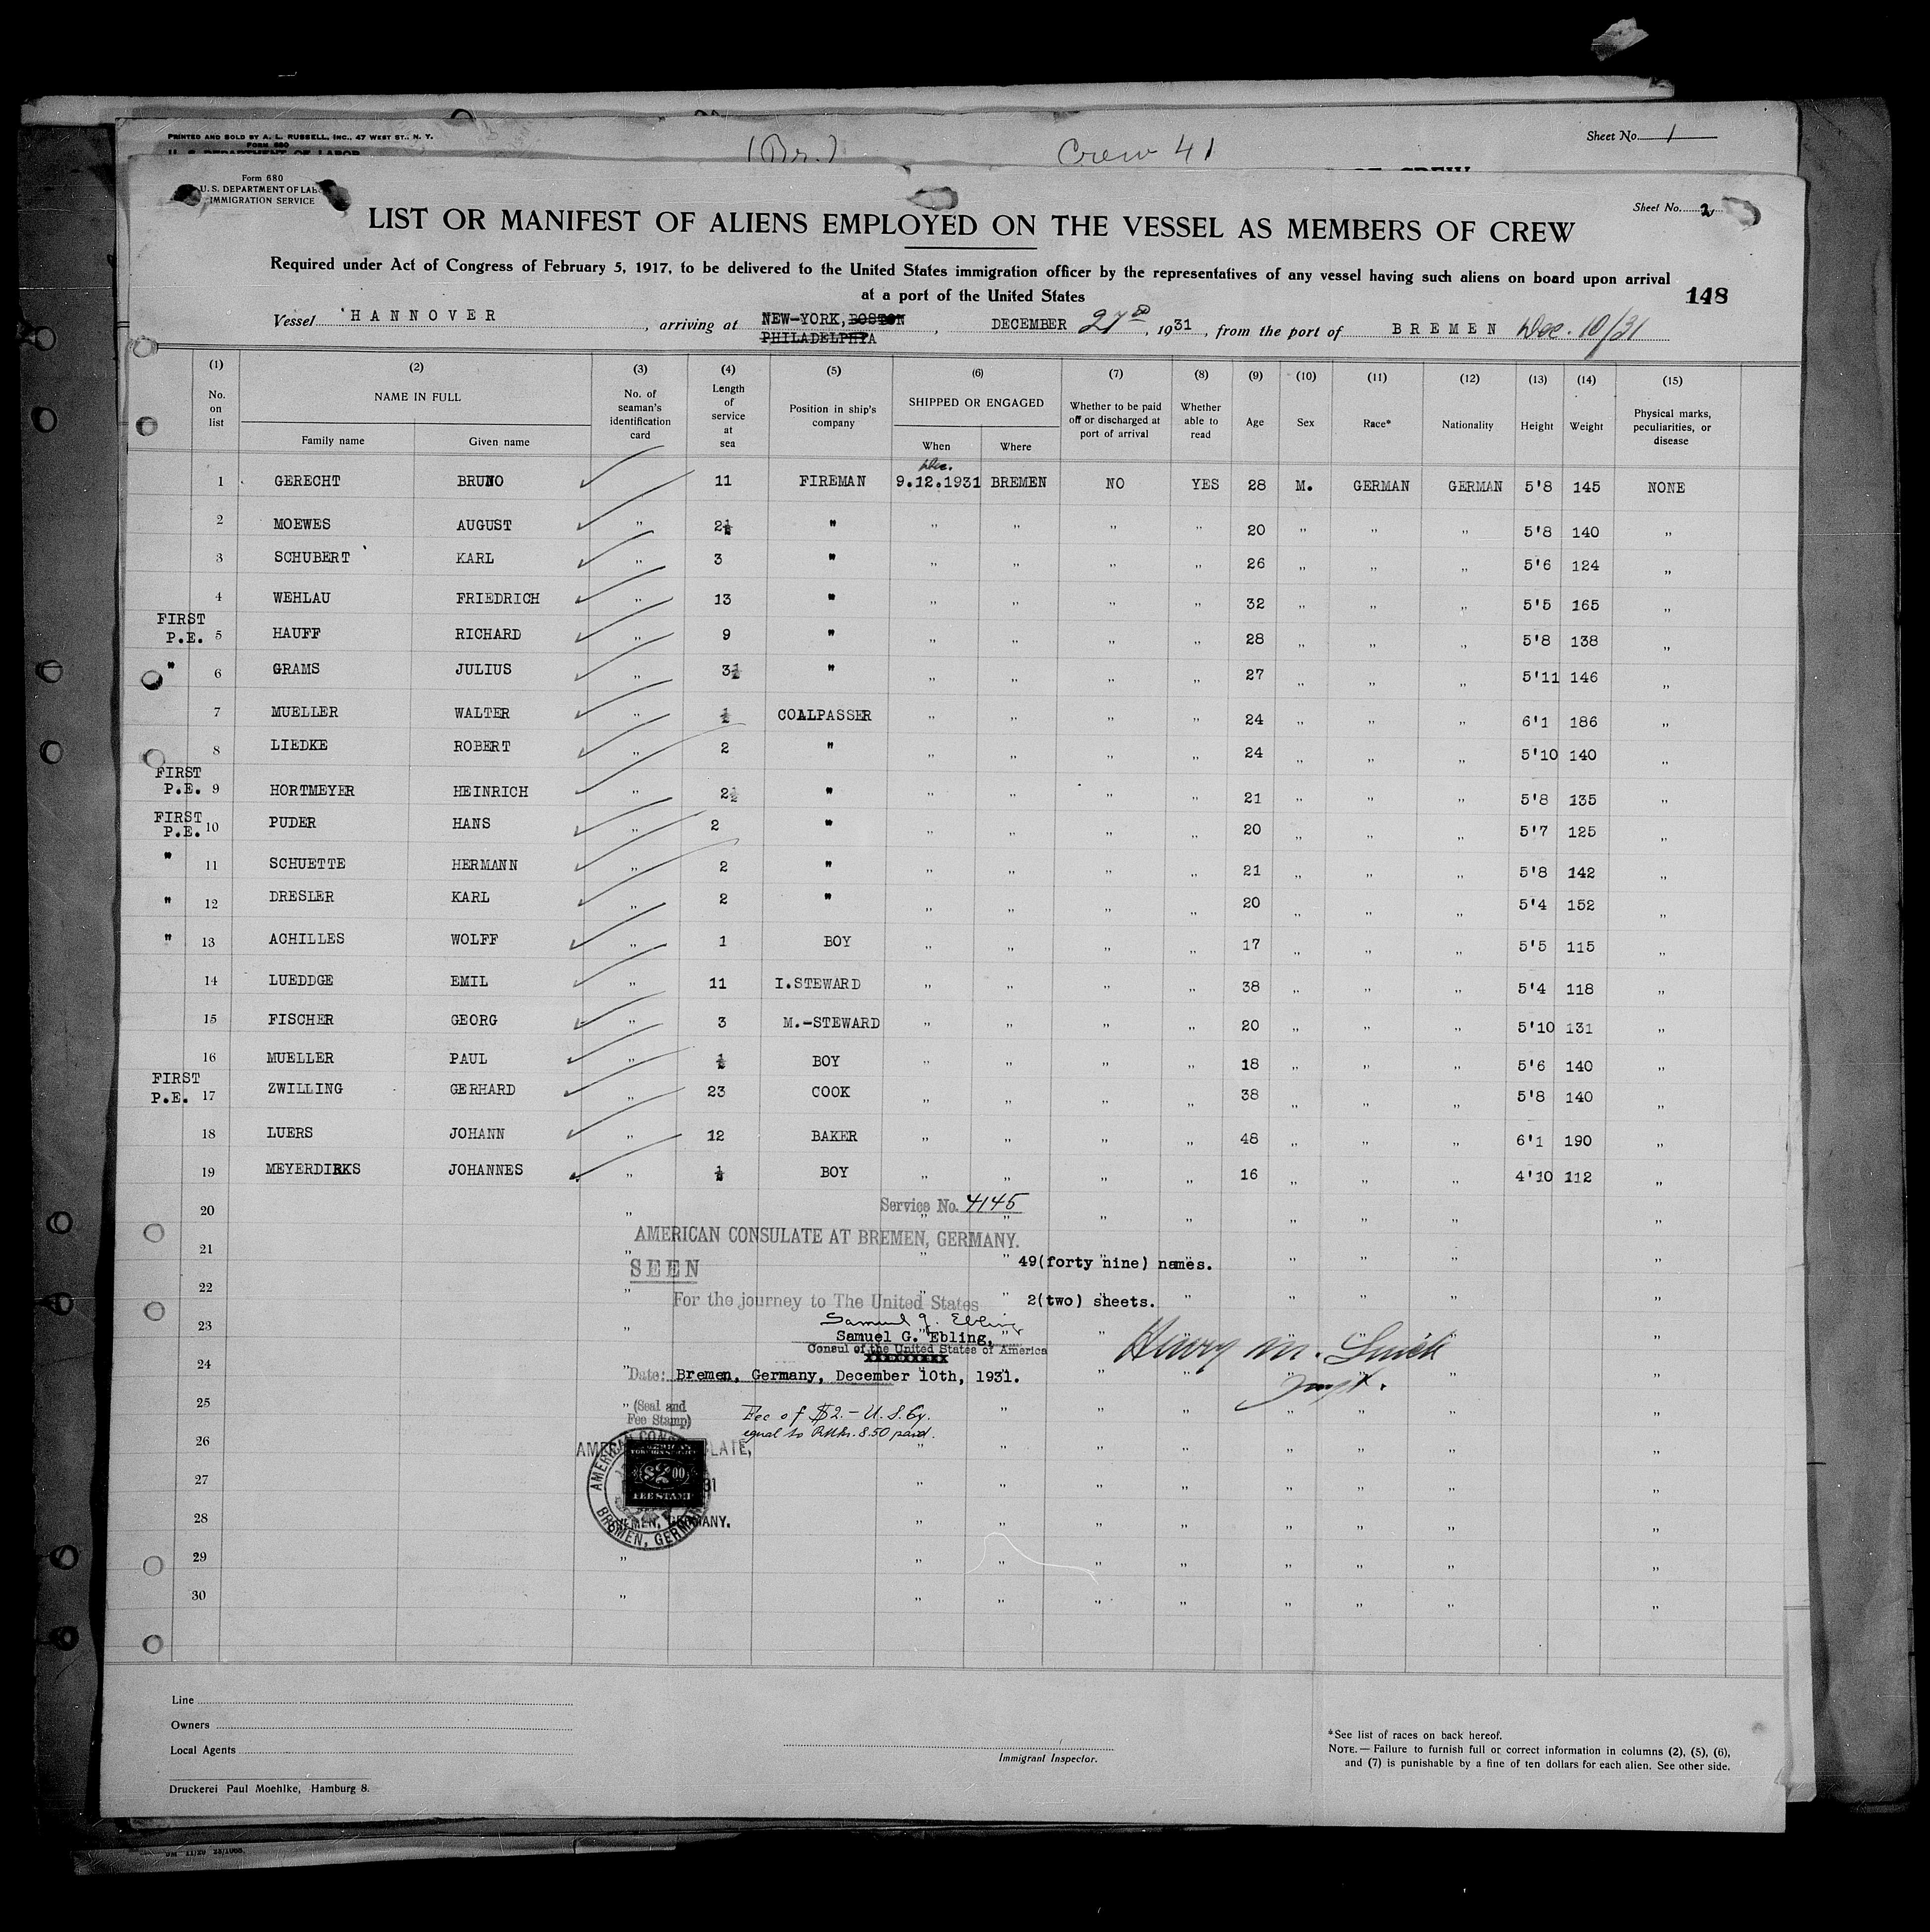 PRINTED AND SOLD BY A. L. RUSSELL, INC., 47 WEST ST., N. Y.
FORM 680
U. S. DEPARTMENT OF LABOR
(Br.) Crew 41
Sheet No. 1
OF CREW
Form 680
U. S. DEPARTMENT OF LABOR
IMMIGRATION SERVICE
Sheet No. 2
LIST OR MANIFEST OF ALIENS EMPLOYED ON THE VESSEL AS MEMBERS OF CREW
Required under Act of Congress of February 5, 1917, to be delivered to the United States immigration officer by the representatives of any vessel having such aliens on board upon arrival
at a port of the United States
148
Vessel HANNOVER, arriving at NEW-YORK, BOSTON PHILADELPHIA, DECEMBER 27, 1931, from the port of BREMEN Dec. 10/31
(1) (2) (3) (4) (5) (6) (7) (8) (9) (10) (11) (12) (13) (14) (15)
No. on list NAME IN FULL Family name Given name No. of seaman's identification card Length of service at sea Position in ship's company SHIPPED OR ENGAGED When Where Whether to be paid off or discharged at port of arrival Whether able to read Age Sex Race* Nationality Height Weight Physical marks, peculiarities, or disease
Dec.
1 GERECHT BRUNO 11 FIREMAN 9.12.1931 BREMEN NO YES 28 M. GERMAN GERMAN 5'8 145 NONE
2 MOEWES AUGUST " 2½ " " " " " 20 " " " 5'8 140 "
3 SCHUBERT KARL " 3 " " " " " 26 " " " 5'6 124 "
4 WEHLAU FRIEDRICH " 13 " " " " " 32 " " " 5'5 165 "
FIRST P.E. 5 HAUFF RICHARD " 9 " " " " " 28 " " " 5'8 138 "
" 6 GRAMS JULIUS " 3½ " " " " " 27 " " " 5'11 146 "
7 MUELLER WALTER " ½ COALPASSER " " " " 24 " " " 6'1 186 "
8 LIEDKE ROBERT " 2 " " " " " 24 " " " 5'10 140 "
FIRST P.E. 9 HORTMEYER HEINRICH " 2½ " " " " " 21 " " " 5'8 135 "
FIRST P.E. 10 PUDER HANS " 2 " " " " " 20 " " " 5'7 125 "
" 11 SCHUETTE HERMANN " 2 " " " " " 21 " " " 5'8 142 "
" 12 DRESLER KARL " 2 " " " " " 20 " " " 5'4 152 "
" 13 ACHILLES WOLFF " 1 BOY " " " " 17 " " " 5'5 115 "
14 LUEDDGE EMIL " 11 I.STEWARD " " " " 38 " " " 5'4 118 "
15 FISCHER GEORG " 3 M.-STEWARD " " " " 20 " " " 5'10 131 "
16 MUELLER PAUL " ½ BOY " " " " 18 " " " 5'6 140 "
FIRST P.E. 17 ZWILLING GERHARD " 23 COOK " " " " 38 " " " 5'8 140 "
18 LUERS JOHANN " 12 BAKER " " " " 48 " " " 6'1 190 "
19 MEYERDIRKS JOHANNES " ½ BOY " " " " 16 " " " 4'10 112 "
20 Service No. 4145
21 AMERICAN CONSULATE AT BREMEN, GERMANY.
SEEN 49(forty nine) names.
22 For the journey to The United States 2(two) sheets.
23 Samuel G. Ebling
Samuel G. Ebling,
Consul of the United States of America
24 Date: Bremen, Germany, December 10th, 1931.
25 (Seal and Fee Stamp) Fee of $2.- U.S.Cy.
26 equal to RMk. 8.50 paid.
AMERICAN CONSULATE,
27 $2.00 FEE STAMP
28 BREMEN, GERMANY.
AMERICAN CONSULATE BREMEN, GERMANY
29
30
Line
Owners
Local Agents
Immigrant Inspector.
*See list of races on back hereof.
NOTE.— Failure to furnish full or correct information in columns (2), (5), (6),
and (7) is punishable by a fine of ten dollars for each alien. See other side.
Druckerei Paul Moehlke, Hamburg 8.